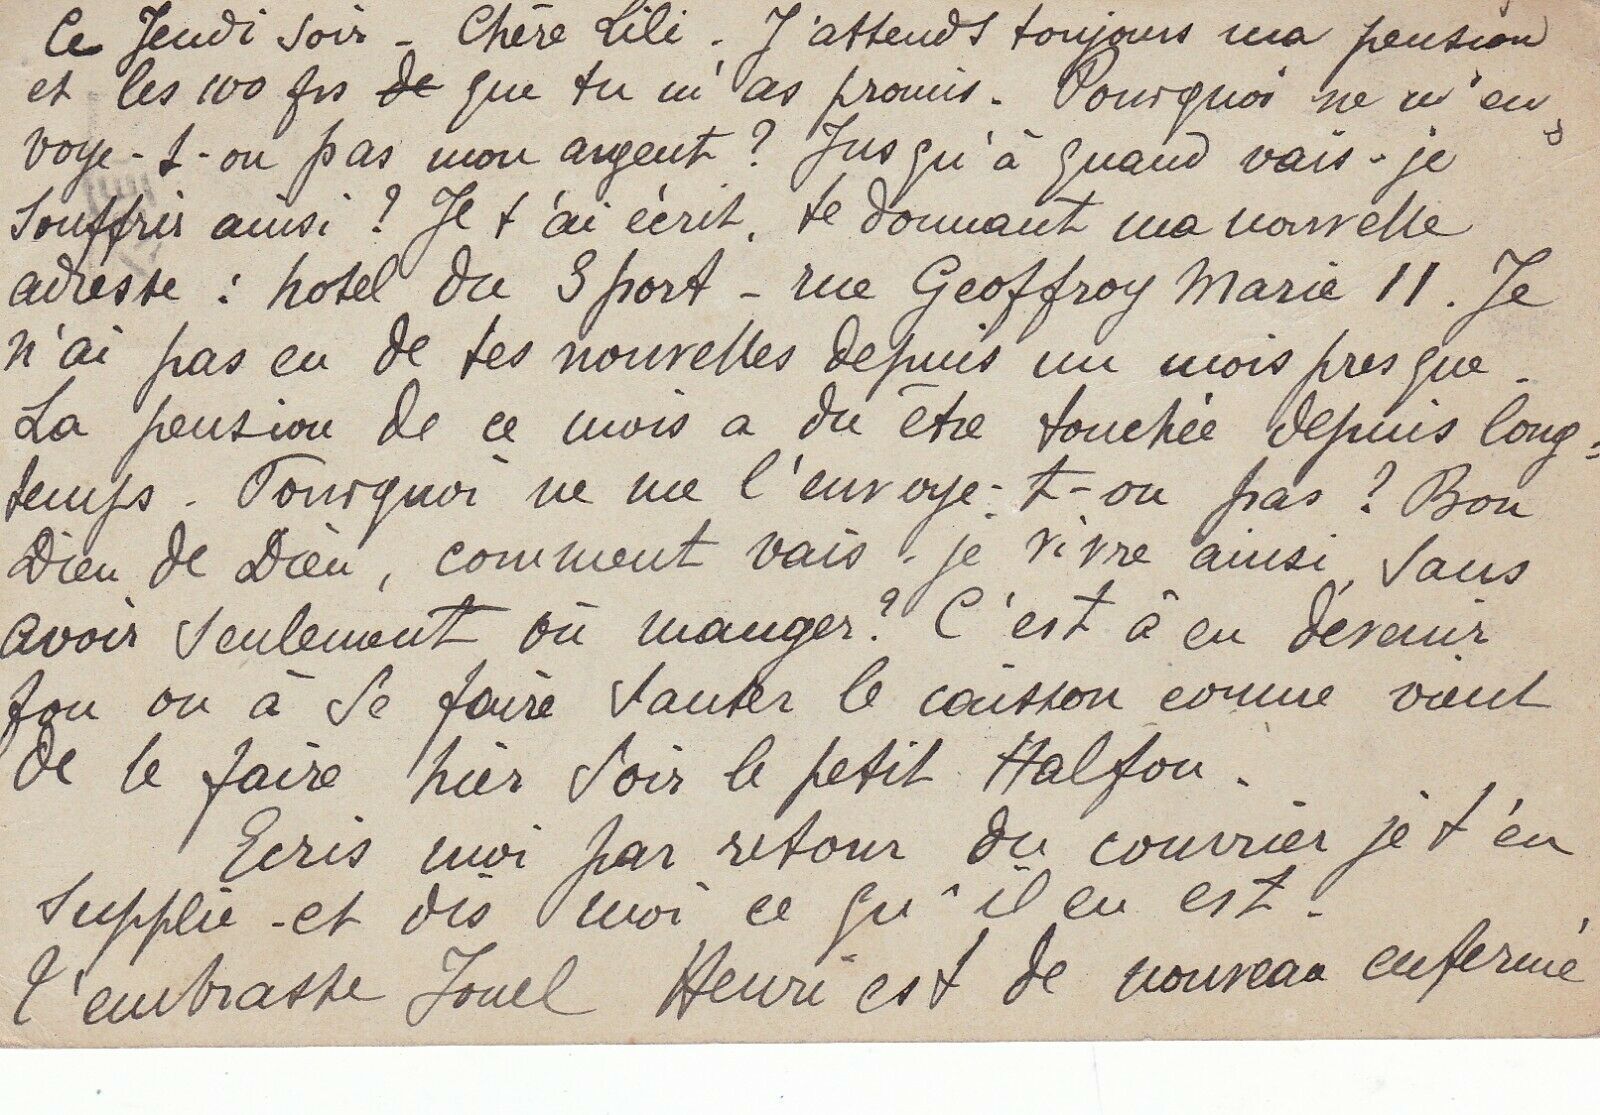 Ce Jeudi soir - Chère Lili. J'attends toujours ma pension
et les 100 frs de que tu m'as promis. Pourquoi ne m'en-
voye-t-on pas mon argent ? Jusqu'à quand vais-je
souffrir ainsi ? Je t'ai écrit, te donnant ma nouvelle
adresse : hotel du Sport - rue Geoffroy Marie 11. Je
n'ai pas eu de tes nouvelles depuis un mois presque.
La pension de ce mois a du être touchée depuis long-
temps. Pourquoi ne me l'envoye-t-on pas ? Bon
Dieu de Dieu, comment vais-je vivre ainsi, sans
avoir seulement où manger ? C'est à en devenir
fou ou à se faire sauter le caisson comme vient
de le faire hier soir le petit Halfon.
Ecris moi par retour du courrier je t'en
supplie - et dis moi ce qu'il en est.
T'embrasse Jouel Henri est de nouveau enfermé